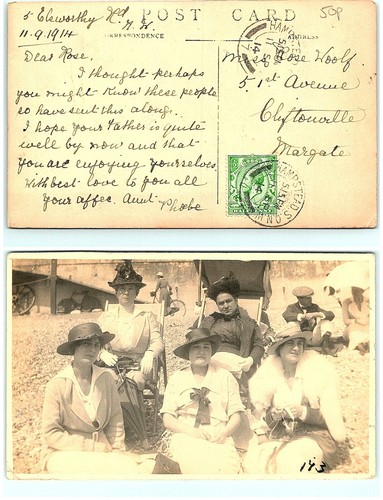 5 Elsworthy Rd
N.W.
11.9.1914
POST CARD
CORRESPONDENCE
ADDRESS
50p
Dear Rose.
I thought perhaps
you might know these people
so have sent this along.
I hope your Father is quite
well by now and that
you are enjoying yourselves.
With best love to you all
your affec. Aunt
Phoebe
Miss Rose Woolf.
5 1st Avenue
Cliftonville
Margate
HAMPSTEAD
SP
14
HAMPSTEAD
143